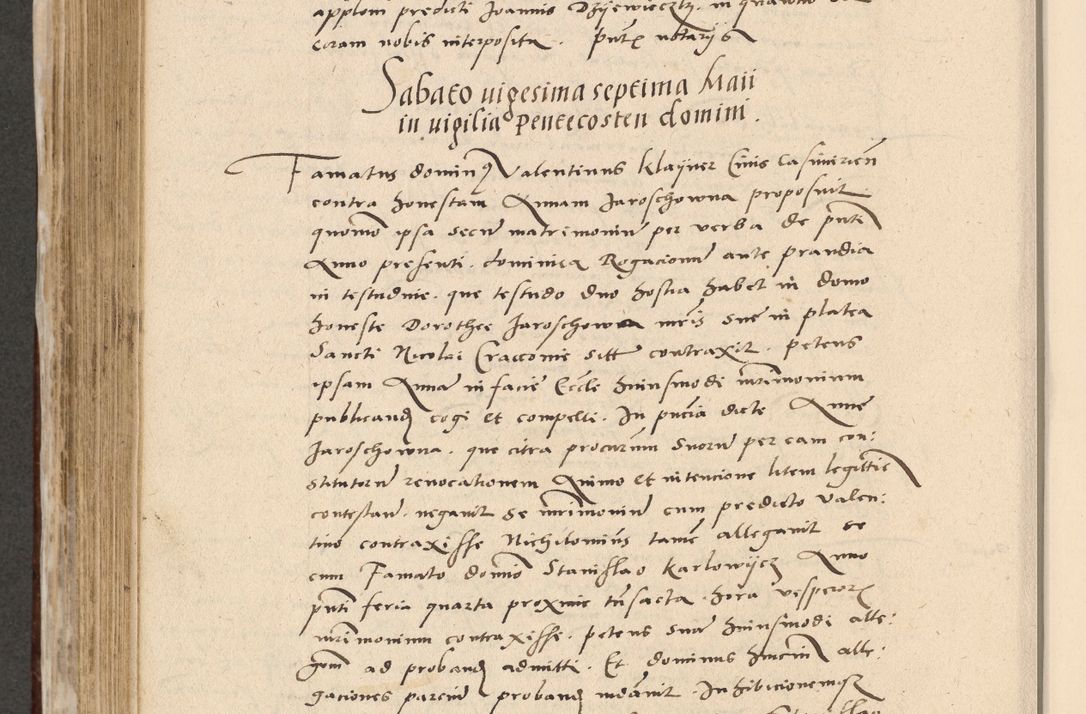 applom predicti Joannis Dzijewieczky in quantum de
coram nobis interposita. pntz notarijs
Sabato vigesima septima Maii
in vigilia Pentecosten domini.
Famatus dominus Valentinus Klayner Civis Casimirien
contra honestam Annam Jaroschowna proposuit
quomo ipsa secum matrimonium per verba de pnti
Anno presenti. dominica Rogacionum ante prandia
in testudine. que testudo duo hostia habet in domo
honeste Dorothee Jaroschowa mris sue in platea
Sancti Nicolai Cracovie sitt contraxit. petens
ipsam Annam in facie Eccle huiusmodi mrimonium
publicand cogi et compelli. In pncia dicte Anne
Jaroschowna. que citra procurum suorum per eam con:
stitutorum revocationem Animo et intencione litem legittie
contestan. negavit se mrimonium cum predicto Valen:
tino contraxisse Nichilominus tame allegavit se
cum Famato domio Stanislao Karlowijcz Anno
pnti feria quarta proxime trnsacta. hora vesperorz
mrimonium contraxisse. petens sua huiusmodi alle:
gom ad proband admitti. Et dominus huiusm alle:
gaciones parciu proband mdavit. Inhibicionemqz